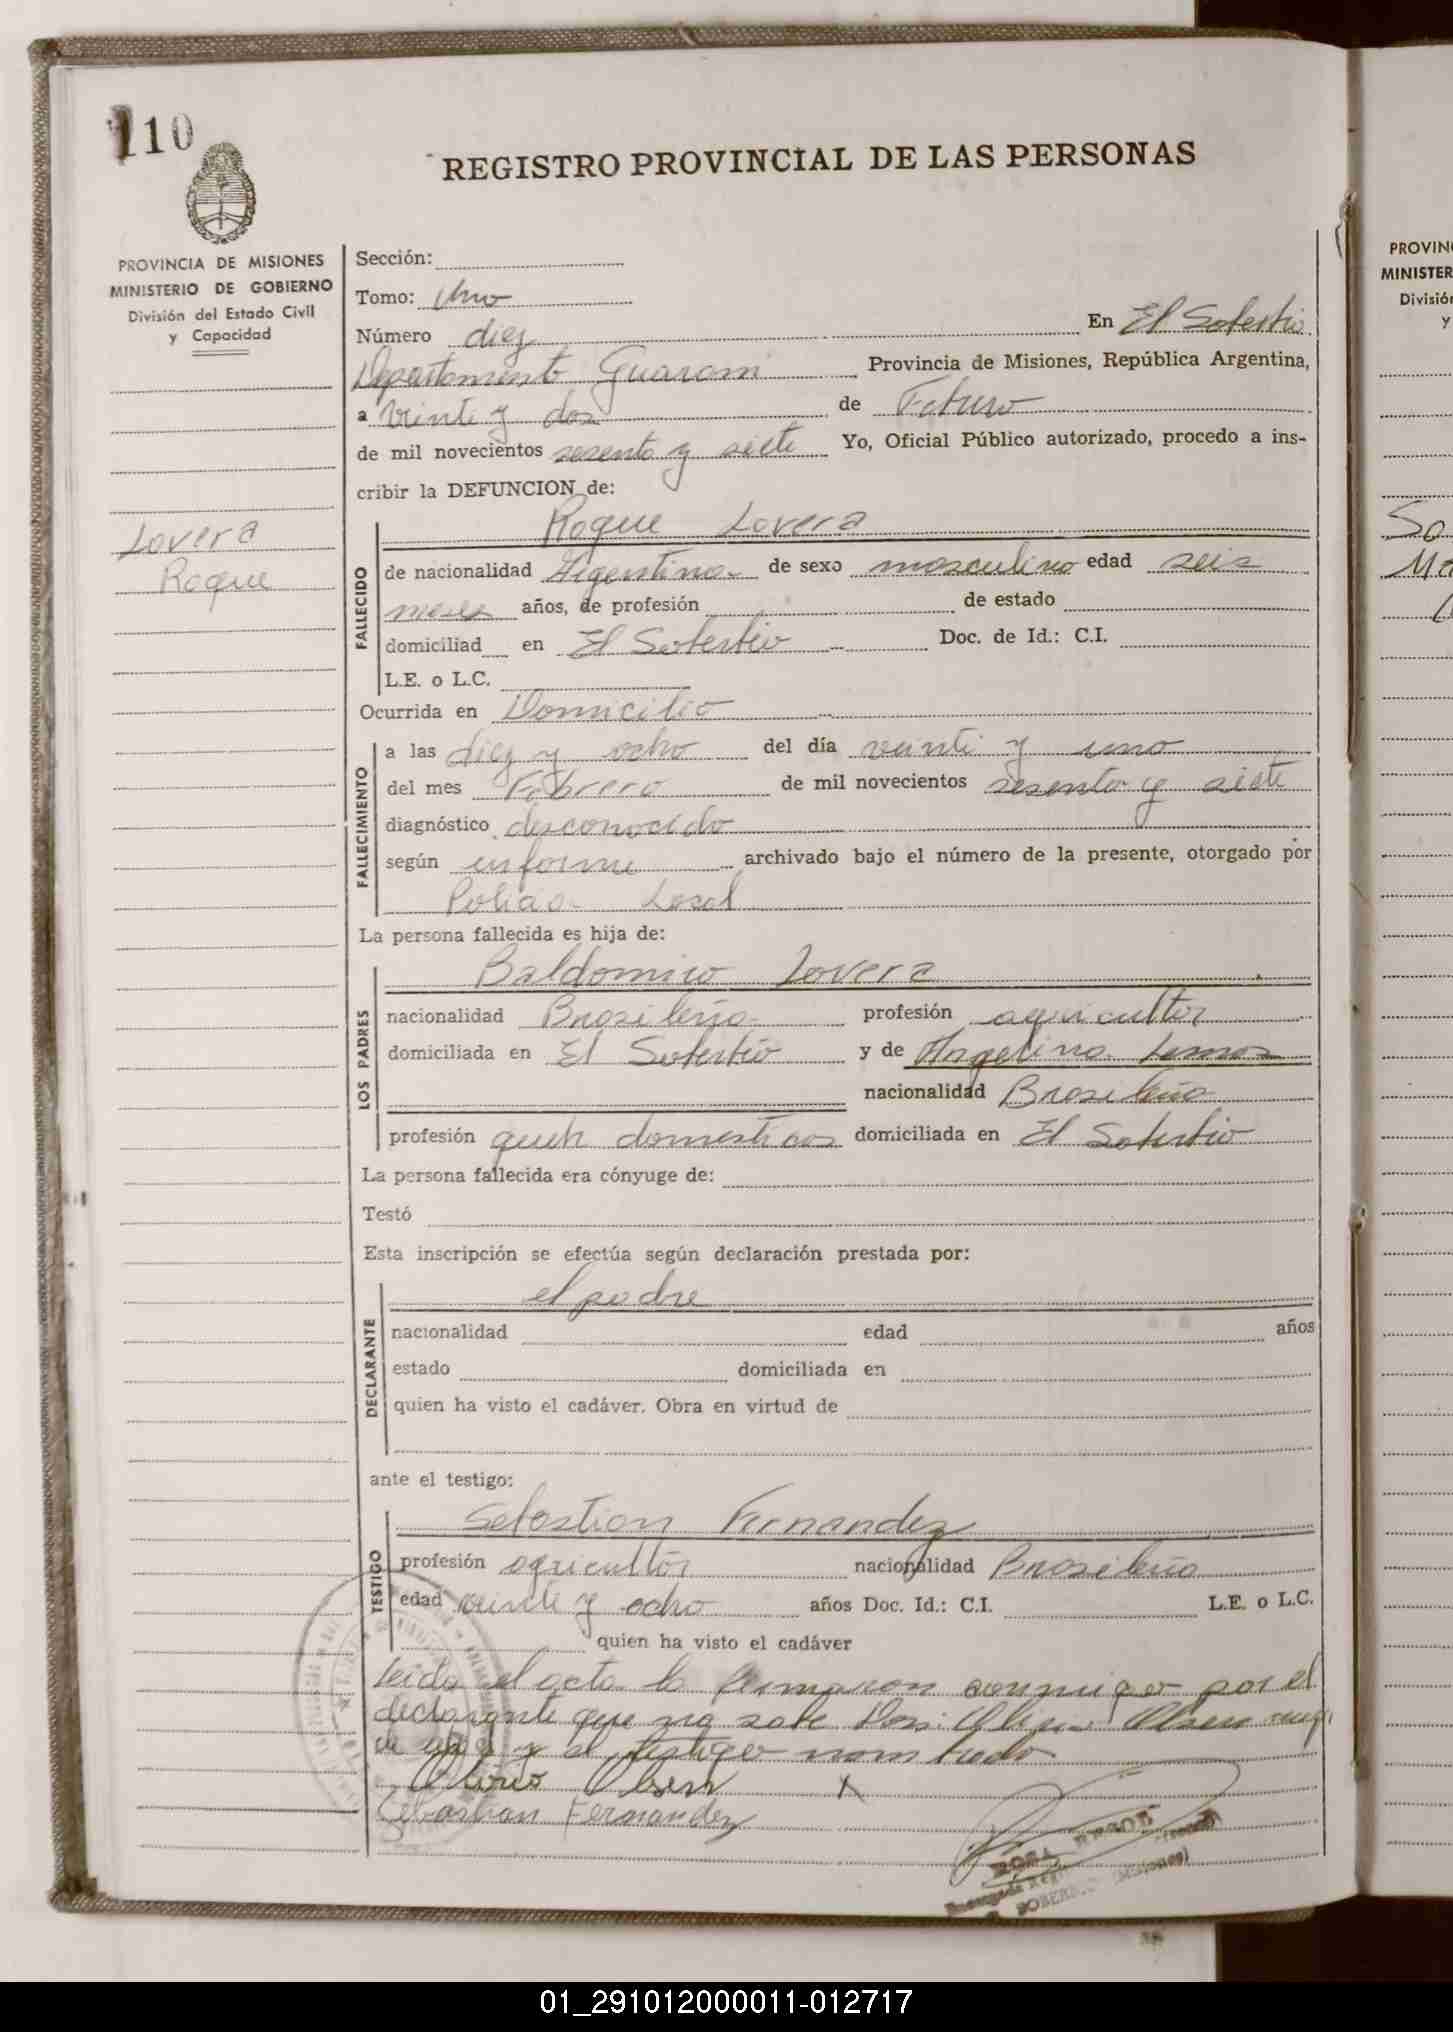 110
REGISTRO PROVINCIAL DE LAS PERSONAS
PROVINCIA DE MISIONES
MINISTERIO DE GOBIERNO
División del Estado Civil
y Capacidad
Lovera
Roque
Sección:
Tomo: Uno
Número diez En El Soberbio
Departamento Guarani Provincia de Misiones, República Argentina,
a veinte y dos de Febrero
de mil novecientos sesenta y siete Yo, Oficial Público autorizado, procedo a ins-
cribir la DEFUNCION de:
FALLECIDO
Roque Lovera
de nacionalidad Argentina de sexo masculino edad seis
meses años, de profesión de estado
domiciliad en El Soberbio Doc. de Id.: C.I.
L.E. o L.C.
Ocurrida en Domicilio
FALLECIMIENTO
a las diez y ocho del día veinti y uno
del mes Febrero de mil novecientos sesenta y siete
diagnóstico desconocido
según informe archivado bajo el número de la presente, otorgado por
Policia Local
La persona fallecida es hija de:
LOS PADRES
Baldomiro Lovera
nacionalidad Brasileña profesión agricultor
domiciliada en El Soberbio y de Angelina Lemos
nacionalidad Brasileña
profesión queh domesticos domiciliada en El Soberbio
La persona fallecida era cónyuge de:
Testó
Esta inscripción se efectúa según declaración prestada por:
DECLARANTE
el padre
nacionalidad edad años
estado domiciliada en
quien ha visto el cadáver. Obra en virtud de
ante el testigo:
TESTIGO
Sebastian Fernandez
profesión agricultor nacionalidad Brasileño
edad veinte y ocho años Doc. Id.: C.I. L.E. o L.C.
quien ha visto el cadáver
Leida el acta la firmaron conmigo por el
declarante que no sabe Don Olsen
y el testigo nombrado
Olsen X
Sebastian Fernandez
PROVIN
MINISTER
Divisió
y
So
Ma
01_291012000011-012717